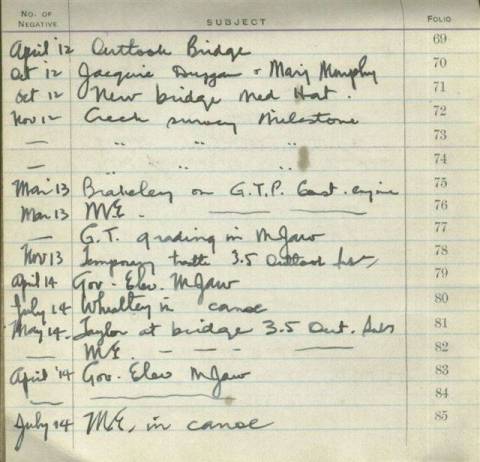 No. OF NEGATIVE SUBJECT FOLIO
April '12 Outlook Bridge 69
Oct '12 Jacquie Duggan & Mary Murphy 70
Oct '12 New bridge Med Hat. 71
Nov 12 Creek survey Milestone 72
— " " " 73
— " " " 74
Mar 13 Brakeley on G.T.P. Gast. engine 75
Mar 13 ME. — — 76
— G.T. grading in MJaw 77
Nov 13 Temporary 3.5 Outlook 78
April 14 Gov. Elev. MJaw 79
July 14 Wheatley in canoe 80
May 14. Taylor at bridge 3.5 Out. 81
— ME. — — — 82
April '14 Gov. Elev MJaw 83
— — 84
July '14 ME, in canoe 85